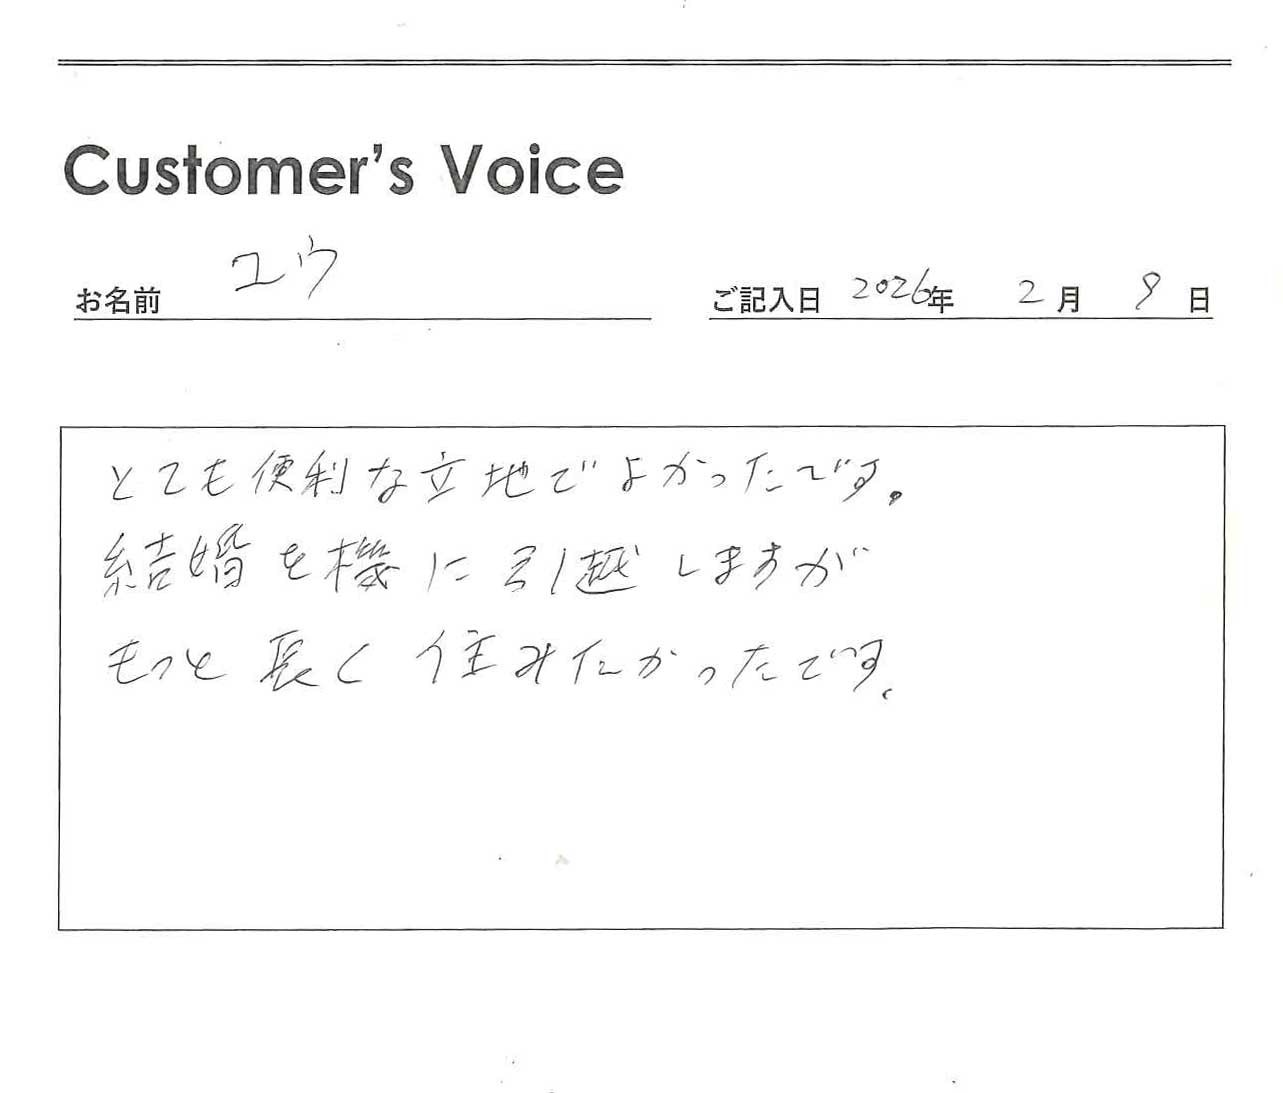 Customer's Voice
お名前 ユウ
ご記入日 2026年 2月 9日
とても便利な立地でよかったです。
結婚を機に引越しますが
もっと長く住みたかったです。